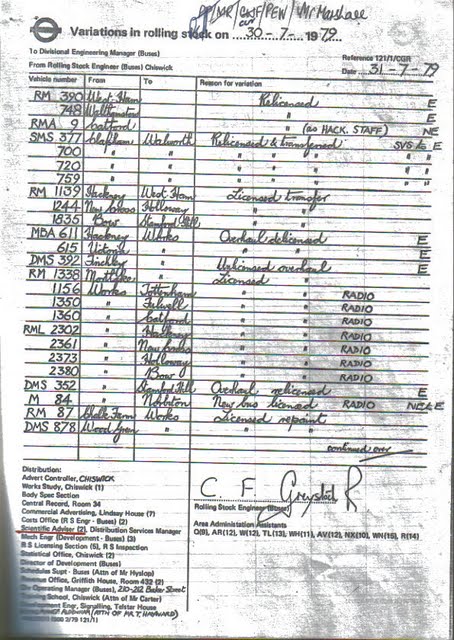 PP/MR/CWF/PEN/Mr Marshall
Variations in rolling stock on 30-7-1979
To Divisional Engineering Manager (Buses)
From Rolling Stock Engineer (Buses) Chiswick
Reference 121/1/CGR
Date 31-7-79
Vehicle number From To Reason for variation
RM 390 West Ham Relicensed E
748 Walthamstow " E
RMA 9 Catford " (as HACK. STAFF) NE
SMS 377 Clapham Walworth Relicensed & transferred SVS to E
700 " " " " "
720 " " " " "
759 " " " " "
RM 1139 Hackney West Ham Licensed transfer
1244 New Cross Holloway " "
1835 Bow Stamford Hill " "
MBA 611 Hackney Works Overhaul delicensed E
615 Victoria " " " E
DMS 392 Finchley " Unlicensed overhaul E
RM 1338 Mortlake " Licensed "
1156 Works Tottenham " " RADIO
1350 " Fulwell " " RADIO
1360 " Catford " " RADIO
RML 2302 " Hackney " " RADIO
2361 " New Cross " " RADIO
2373 " Holloway " " RADIO
2380 " Bow " " RADIO
DMS 352 " Stamford Hill Overhaul relicensed E
M 84 " Norbiton New bus licensed RADIO
RM 87 Chalk Farm Works Licensed repaint
DMS 878 Wood Green " " "
continued over
Distribution:
Advert Controller, CHISWICK
Works Study, Chiswick (1)
Body Spec Section
Central Record, Room 34
Commercial Advertising, Lindsay House (7)
Costs Office (R S Engr - Buses) (2)
Scientific Adviser (2), Distribution Services Manager
Mech Engr (Development - Buses) (3)
R S Licensing Section (5), R S Inspection
Statistical Office, Chiswick (2)
Director of Development (Buses)
Schedules Supt - Buses (Attn of Mr Hyslop)
Revenue Office, Griffith House, Room 432 (2)
Operating Manager (Buses), 210-212 Baker Street
Training School, Chiswick (Attn of Mr Carter)
Development Engr, Signalling, Telstar House
(ATTN OF MR. T. HAYWARD)
C F
Rolling Stock Engineer (Buses)
Area Administration Assistants
Q(9), AR(12), W(12), TL(13), WH(11), AV(12), NX(10), WN(15), R(14)